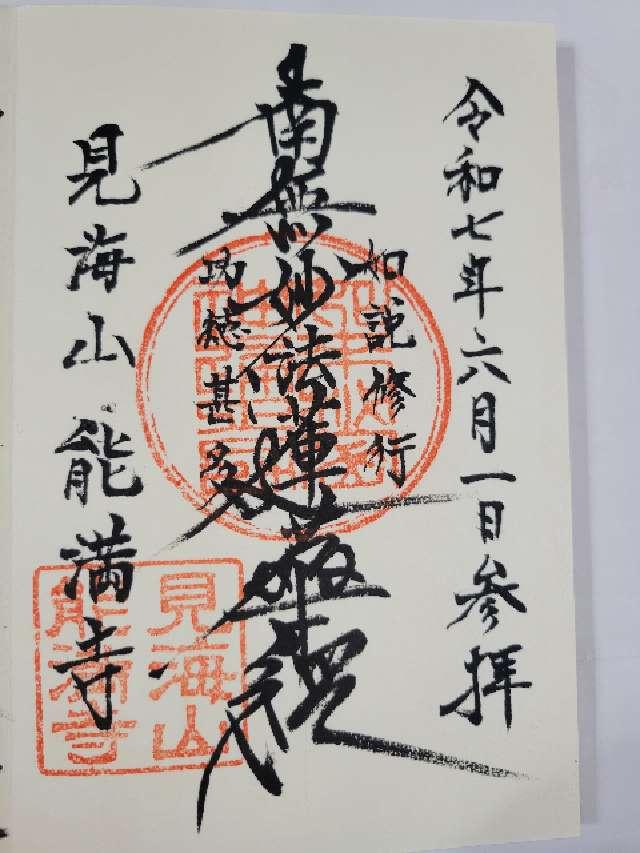 令和七年六月一日参拝
如説修行
南無妙法蓮華経
功徳甚多
見海山能満寺
見海山
能満寺